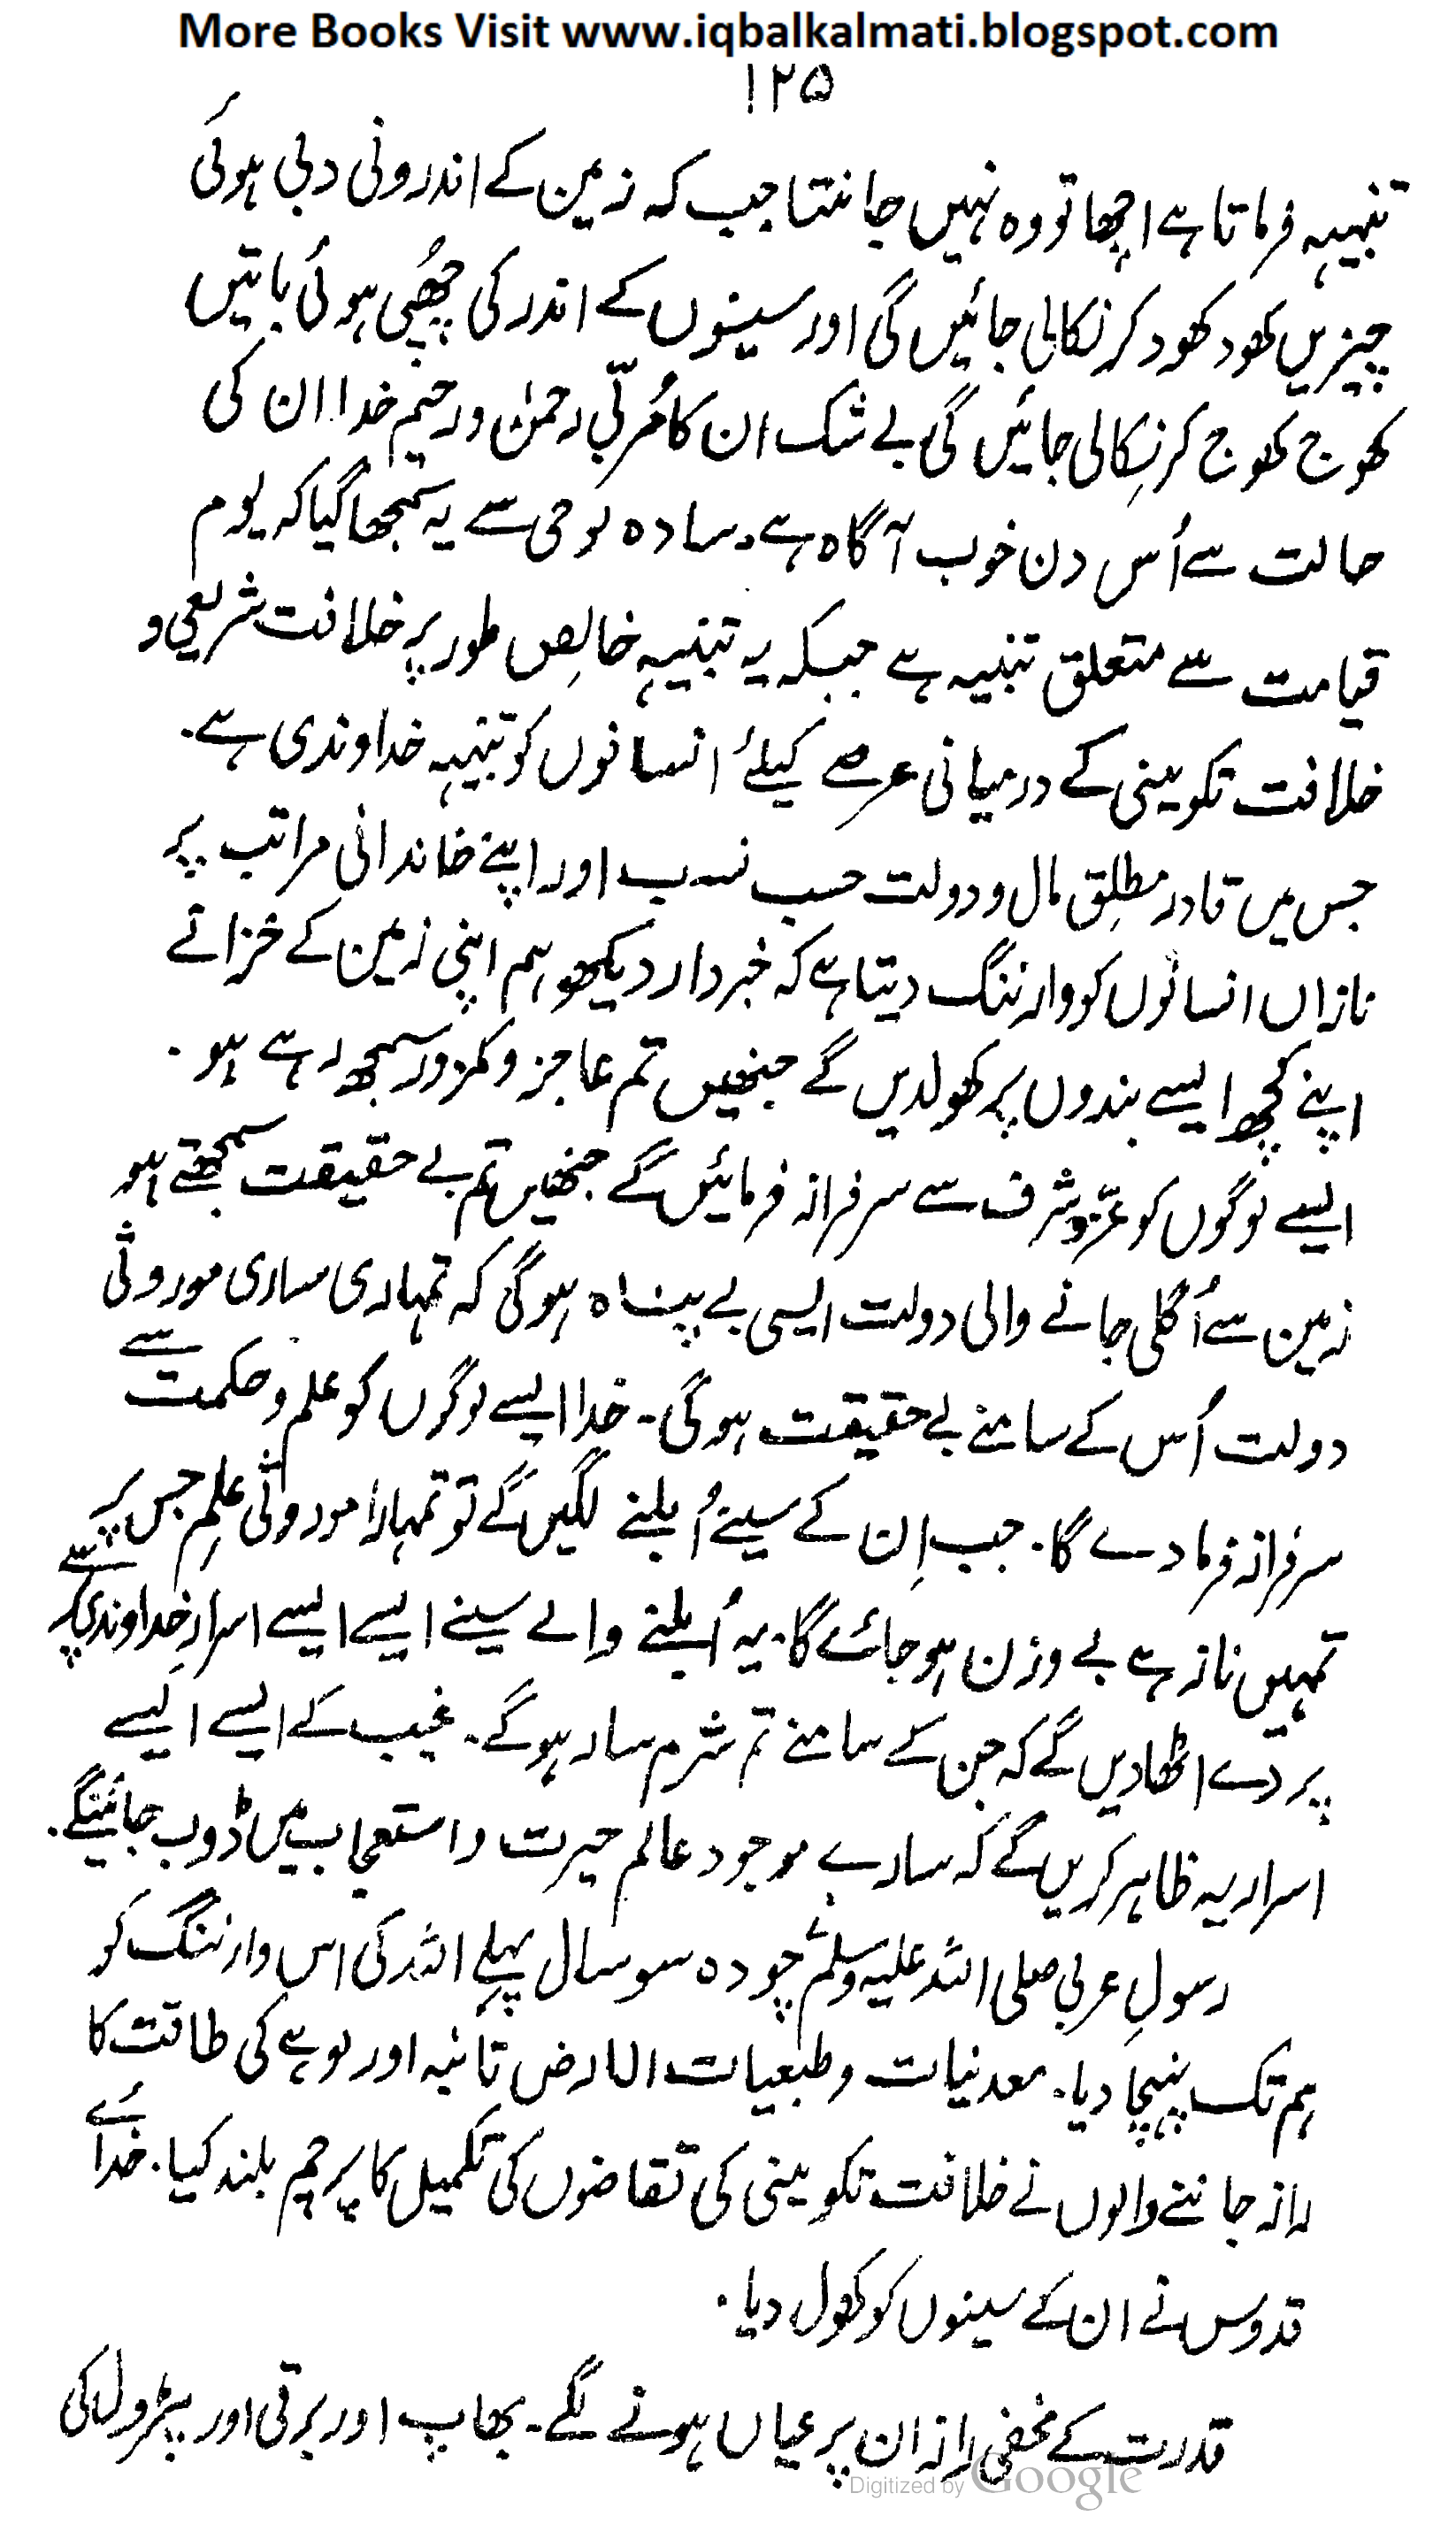 More Books Visit www.iqbalkalmati.blogspot.com
۱۲۵
تنبیہہ فرماتا ہے اچھا تو وہ نہیں جانتا جب کہ زمین کے اندرونی دبی ہوئی
چیزیں کھود کھود کر نکالی جائیں گی اور سینوں کے اندر کی چُھپی ہوئی باتیں
کھوج کھوج کر نِکالی جائیں گی بے شک ان کا مُربّی رحمٰن و رحیم خدا ان کی
حالت سے اُس دن خوب آگاہ ہے۔ سادہ لوحی سے یہ سمجھا گیا کہ یوم
قیامت سے متعلق تنبیہ ہے جبکہ یہ تنبیہہ خالِص طور پر خلافت شریعی و
خلافت تکوینی کے درمیانی عرصے کیلئے انسانوں کو تنبیہہ خداوندی ہے۔
جس میں قادر مطلِق مال و دولت حسب نسب اور اپنے خاندانی مراتب پر
نازاں انسانوں کو وارننگ دیتا ہے کہ خبردار دیکھو ہم اپنی زمین کے خزانے
اپنے کچھ ایسے بندوں پر کھولدیں گے جنھیں تم عاجز و کمزور سمجھ رہے ہو۔
ایسے لوگوں کو عزّ و شرف سے سرفراز فرمائیں گے جنھیں تم بے حقیقت سمجھتے ہو
زمین سے اُگلی جانے والی دولت ایسی بے پناہ ہوگی کہ تمہاری ساری موروثی
دولت اُس کے سامنے بے حقیقت ہوگی۔ خدا ایسے لوگوں کو علم و حکمت سے
سرفراز فرما دے گا۔ جب اِن کے سینے اُبلنے لگیں گے تو تمہارا موروثی علِم جس پر
تمہیں ناز ہے بے وزن ہو جائے گا۔ یہ اُبلنے والے سینے ایسے ایسے اسرارِ خداوندی پر سے
پردے اٹھا دیں گے کہ جن کے سامنے تم شرم سار ہوگے۔ غیب کے ایسے ایسے
اسرار یہ ظاہر کریں گے کہ سارے موجود عالم حیرت و استعجاب میں ڈوب جائینگے۔
رسولِ عربی صلی اللہ علیہ وسلم چودہ سو سال پہلے اللہ کی اس وارننگ کو
ہم تک پہنچا دیا۔ معدنیات و طبعیات الارض تانبہ اور لوہے کی طاقت کا
راز جاننے والوں نے خلافت تکوینی کی تقاضوں کی تکمیل کا پرچم بلند کیا۔ خدائے
قدوس نے ان کے سینوں کو کھول دیا۔
قدرت کے مخفی راز ان پر عیاں ہونے لگے۔ بھاپ اور برقی اور پیٹرول کی
Digitized by Google